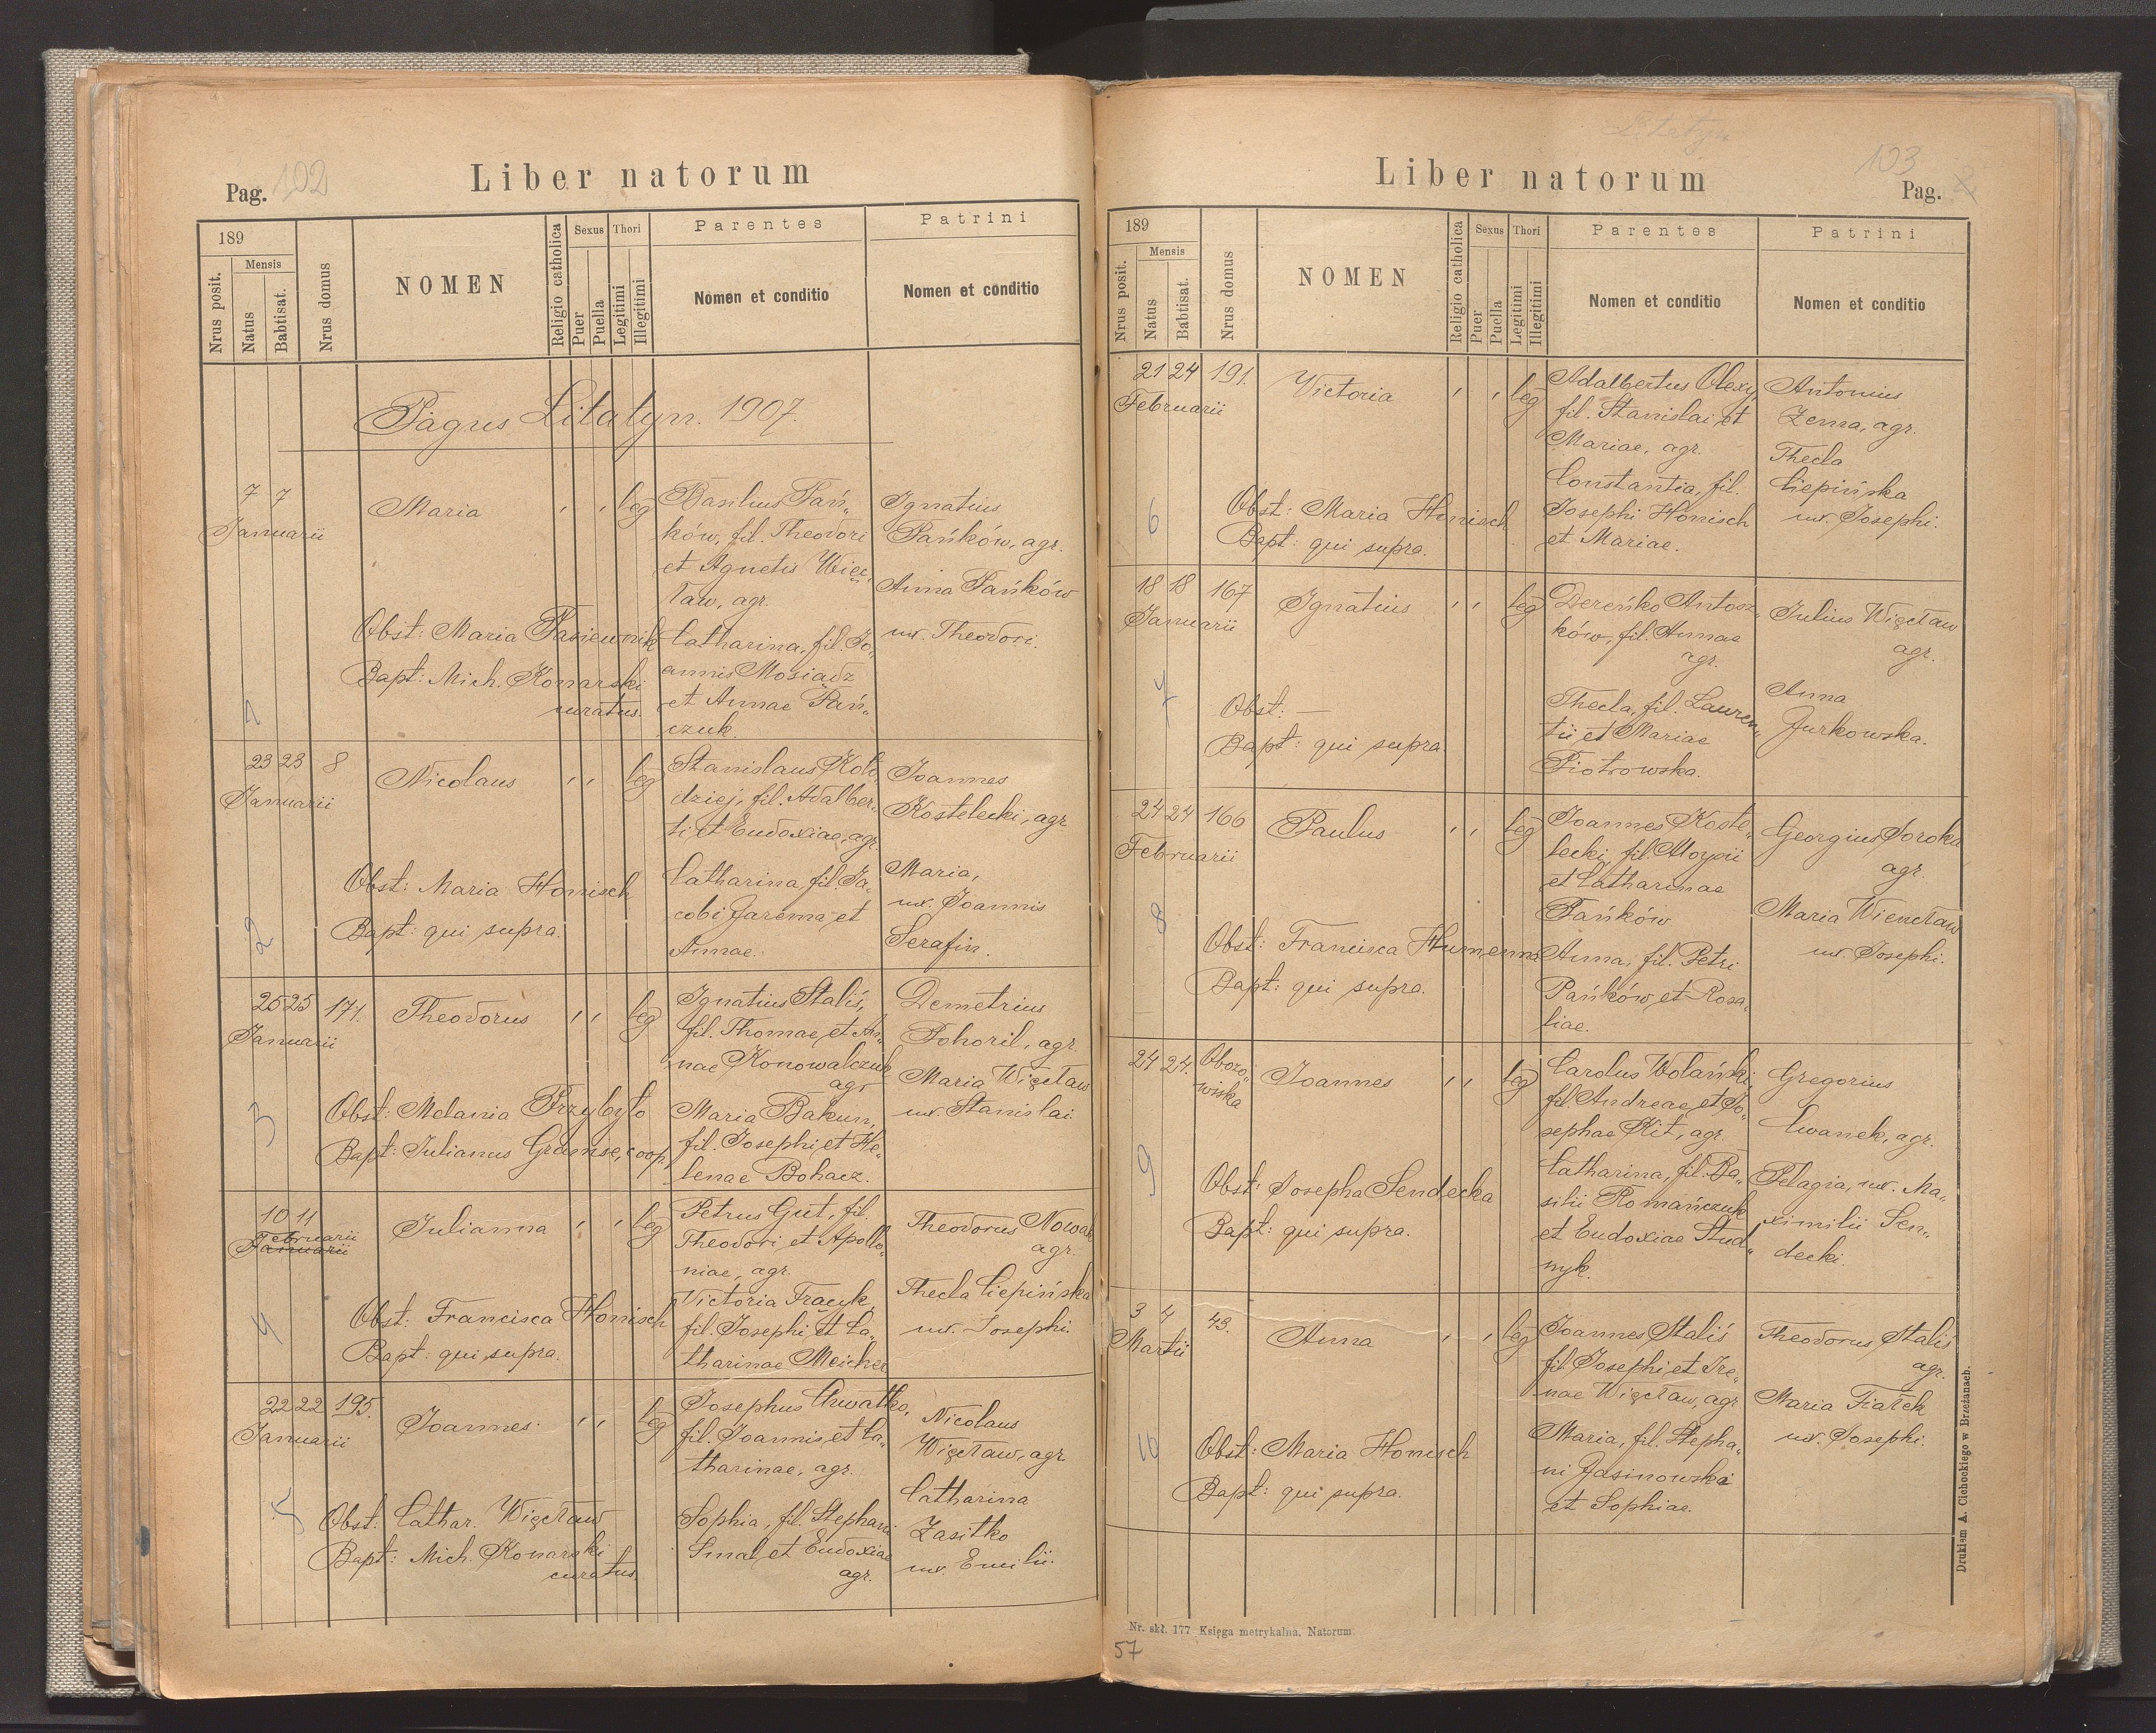 Pag. 102
Liber natorum
189
Nrus posit.
Mensis
Natus
Babtisat.
Nrus domus
NOMEN
Religio catholica
Sexus
Puer
Puella
Thori
Legitimi
Illegitimi
Parentes
Nomen et conditio
Patrini
Nomen et conditio
Pagus Litatyn. 1907.
7 7
Januarii
Maria
leg
Basilius Pań„
ków, fil. Theodori
et Agnetis Więc„
ław, agr.
Catharina, fil. Jo„
annis Mosiadz
et Annae Pań„
czuk.
Ignatius
Pańków, agr.
Anna Pańków
ux. Theodori.
Obst: Maria Pasiewnik
Bapt: Mich. Konarski
curatus.
1
23 23 8
Januarii
Nicolaus
leg
Stanislaus Koło
dziej, fil. Adalber„
ti et Eudoxiae, agr.
Catharina, fil. Ja„
cobi Jarema et
Annae.
Joannes
Kostelecki, agr
Maria,
ux. Joannis
Serafin.
Obst: Maria Homisch
Bapt: qui supra.
2
25 25 171.
Januarii
Theodorus
leg
Ignatius Staliś,
fil. Thomae et An„
nae Konowalczuk
agr
Maria Bakun,
fil. Josephi et He„
lenae Bohacz.
Demetrius
Pohoril, agr.
Maria Więcław
ux. Stanislai.
Obst: Melania Przybyło
Bapt: Julianus Gramse, coop.
3
10 11
Februarii
Januarii
Julianna
leg
Petrus Gut, fil.
Theodori et Apollo„
niae, agr.
Victoria Tracyk,
fil. Josephi et Ca„
tharinae Meicher
Theodorus Nowak
agr.
Thecla Ciepińska
ux. Josephi.
Obst: Francisca Homisch
Bapt: qui supra.
4
22 22 195.
Januarii
Joannes
leg
Josephus Chwałko,
fil. Joannis et Ca„
tharinae, agr.
Sophia, fil. Stephani
Smal et Eudoxiae
agr.
Nicolaus
Więcław, agr
Catharina
Zasitko
ux. Emilii.
Obst: Cathar. Więcław
Bapt: Mich. Konarski
curatus.
5
Litatyn
103
Liber natorum
Pag. 2
189
Nrus posit.
Mensis
Natus
Babtisat.
Nrus domus
NOMEN
Religio catholica
Sexus
Puer
Puella
Thori
Legitimi
Illegitimi
Parentes
Nomen et conditio
Patrini
Nomen et conditio
21 24 191.
Februarii
Victoria
leg
Adalbertus Olexy,
fil. Stanislai et
Mariae, agr.
Constantia, fil.
Josephi Homisch
et Mariae.
Antonius
Zema, agr.
Thecla
Ciepińska
ux. Josephi.
Obst: Maria Homisch
Bapt: qui supra.
6
18 18 167
Januarii
Ignatius
leg
Dereńko Antosz„
ków, fil. Annae
agr.
Thecla, fil. Lauren„
tii et Mariae
Piotrowska.
Julius Więcław
agr.
Anna
Jurkowska.
Obst: —
Bapt: qui supra.
7
24 24 166
Februarii
Paulus
leg
Joannes Koste„
lecki, fil. Aloysii
et Catharinae
Pańków
Anna, fil. Petri
Pańków et Rosa„
liae.
Georgius Soroka
agr.
Maria Wiencław
ux. Josephi.
Obst: Francisca Humenna
Bapt: qui supra.
8
24 24. Oboro„
wiska
Joannes
leg
Carolus Wolański,
fil. Andreae et Jo„
sephae Kit, agr.
Catharina, fil. Ba„
silii Romańczuk
et Eudoxiae Stud„
nyk.
Gregorius
Cwanek, agr.
Pelagia, ux. Ma„
ximilii Sen„
decki.
Obst: Josepha Sendecka
Bapt: qui supra.
9
3 4 43.
Martii
Anna
leg
Joannes Staliś
fil. Josephi et Ire„
nae Więcław, agr
Maria, fil. Stepha„
ni Jasinowski
et Sophiae.
Theodorus Staliś
agr.
Maria Fiałek
ux. Josephi.
Obst: Maria Homisch
Bapt: qui supra.
10
Drukiem A. Cichockiego w Brzeżanach.
Nr. skł. 177 Księga metrykalna. Natorum
57